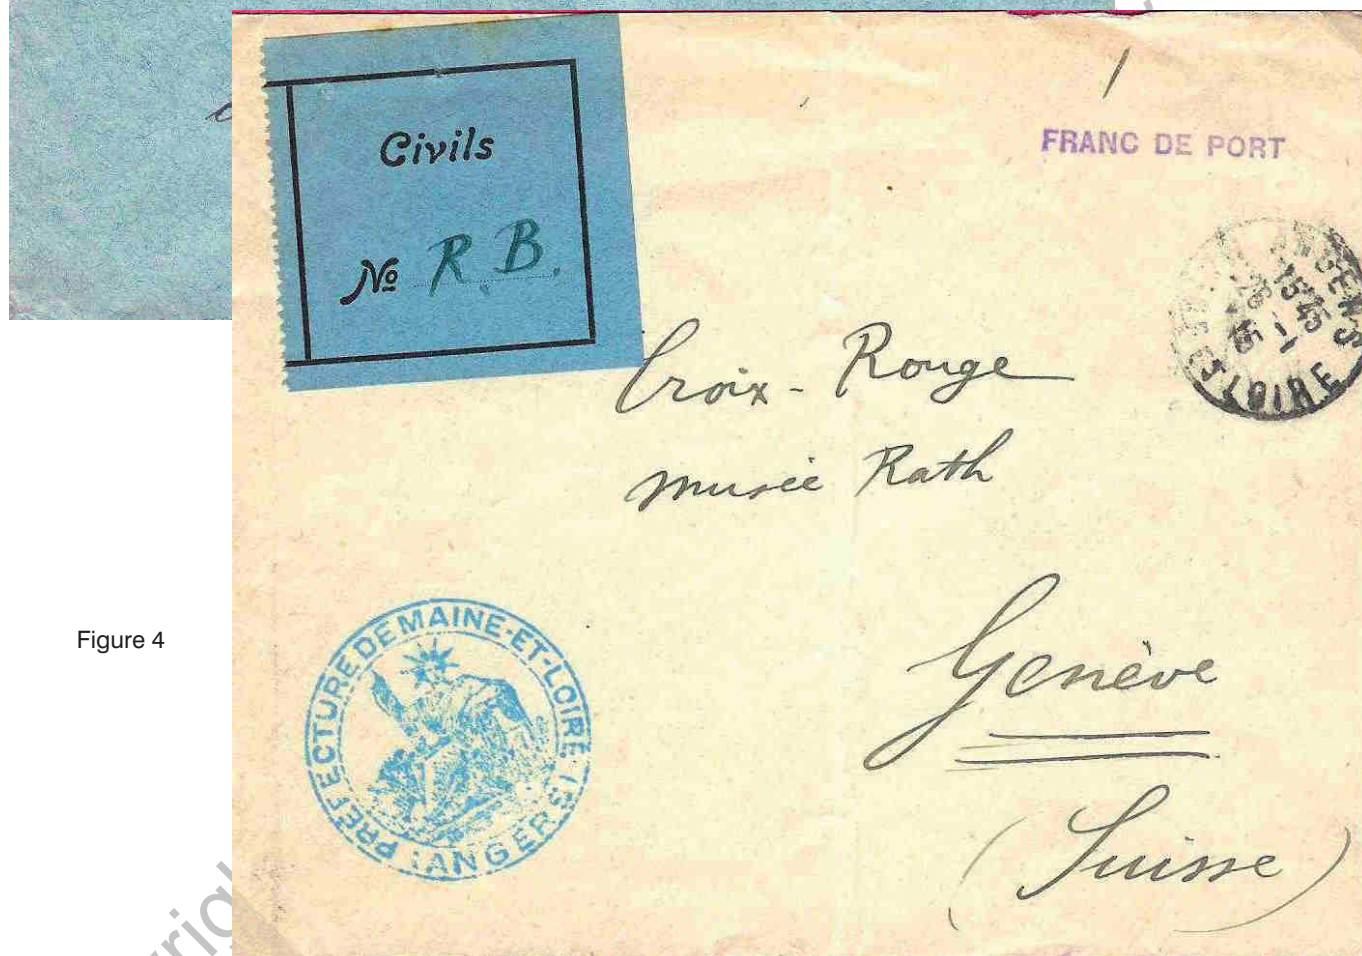 Civils
№ R. B.
FRANC DE PORT
15 45
26 -1
15
ET LOIRE
Croix-Rouge
musée Rath
Genève
(Suisse)
PRÉFECTURE DE MAINE-ET-LOIRE
(ANGERS)
Figure 4